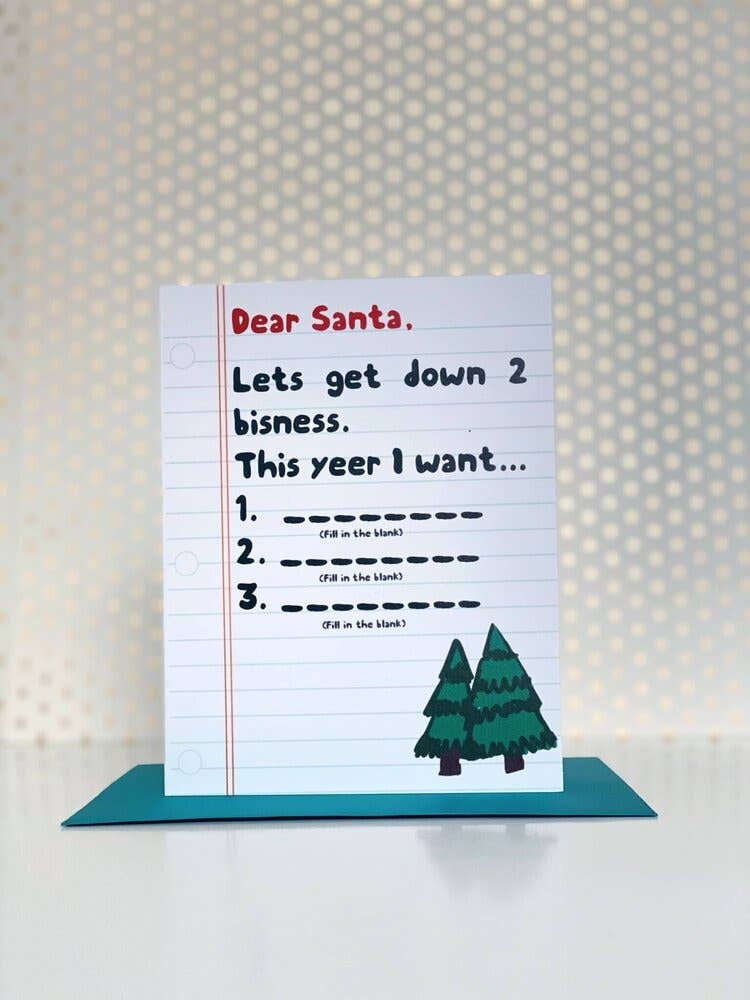 Dear Santa,
Lets get down 2
bisness.
This yeer I want...
1. _ _ _ _ _ _ _ _
(Fill in the blank)
2. _ _ _ _ _ _ _ _
(Fill in the blank)
3. _ _ _ _ _ _ _ _
(Fill in the blank)